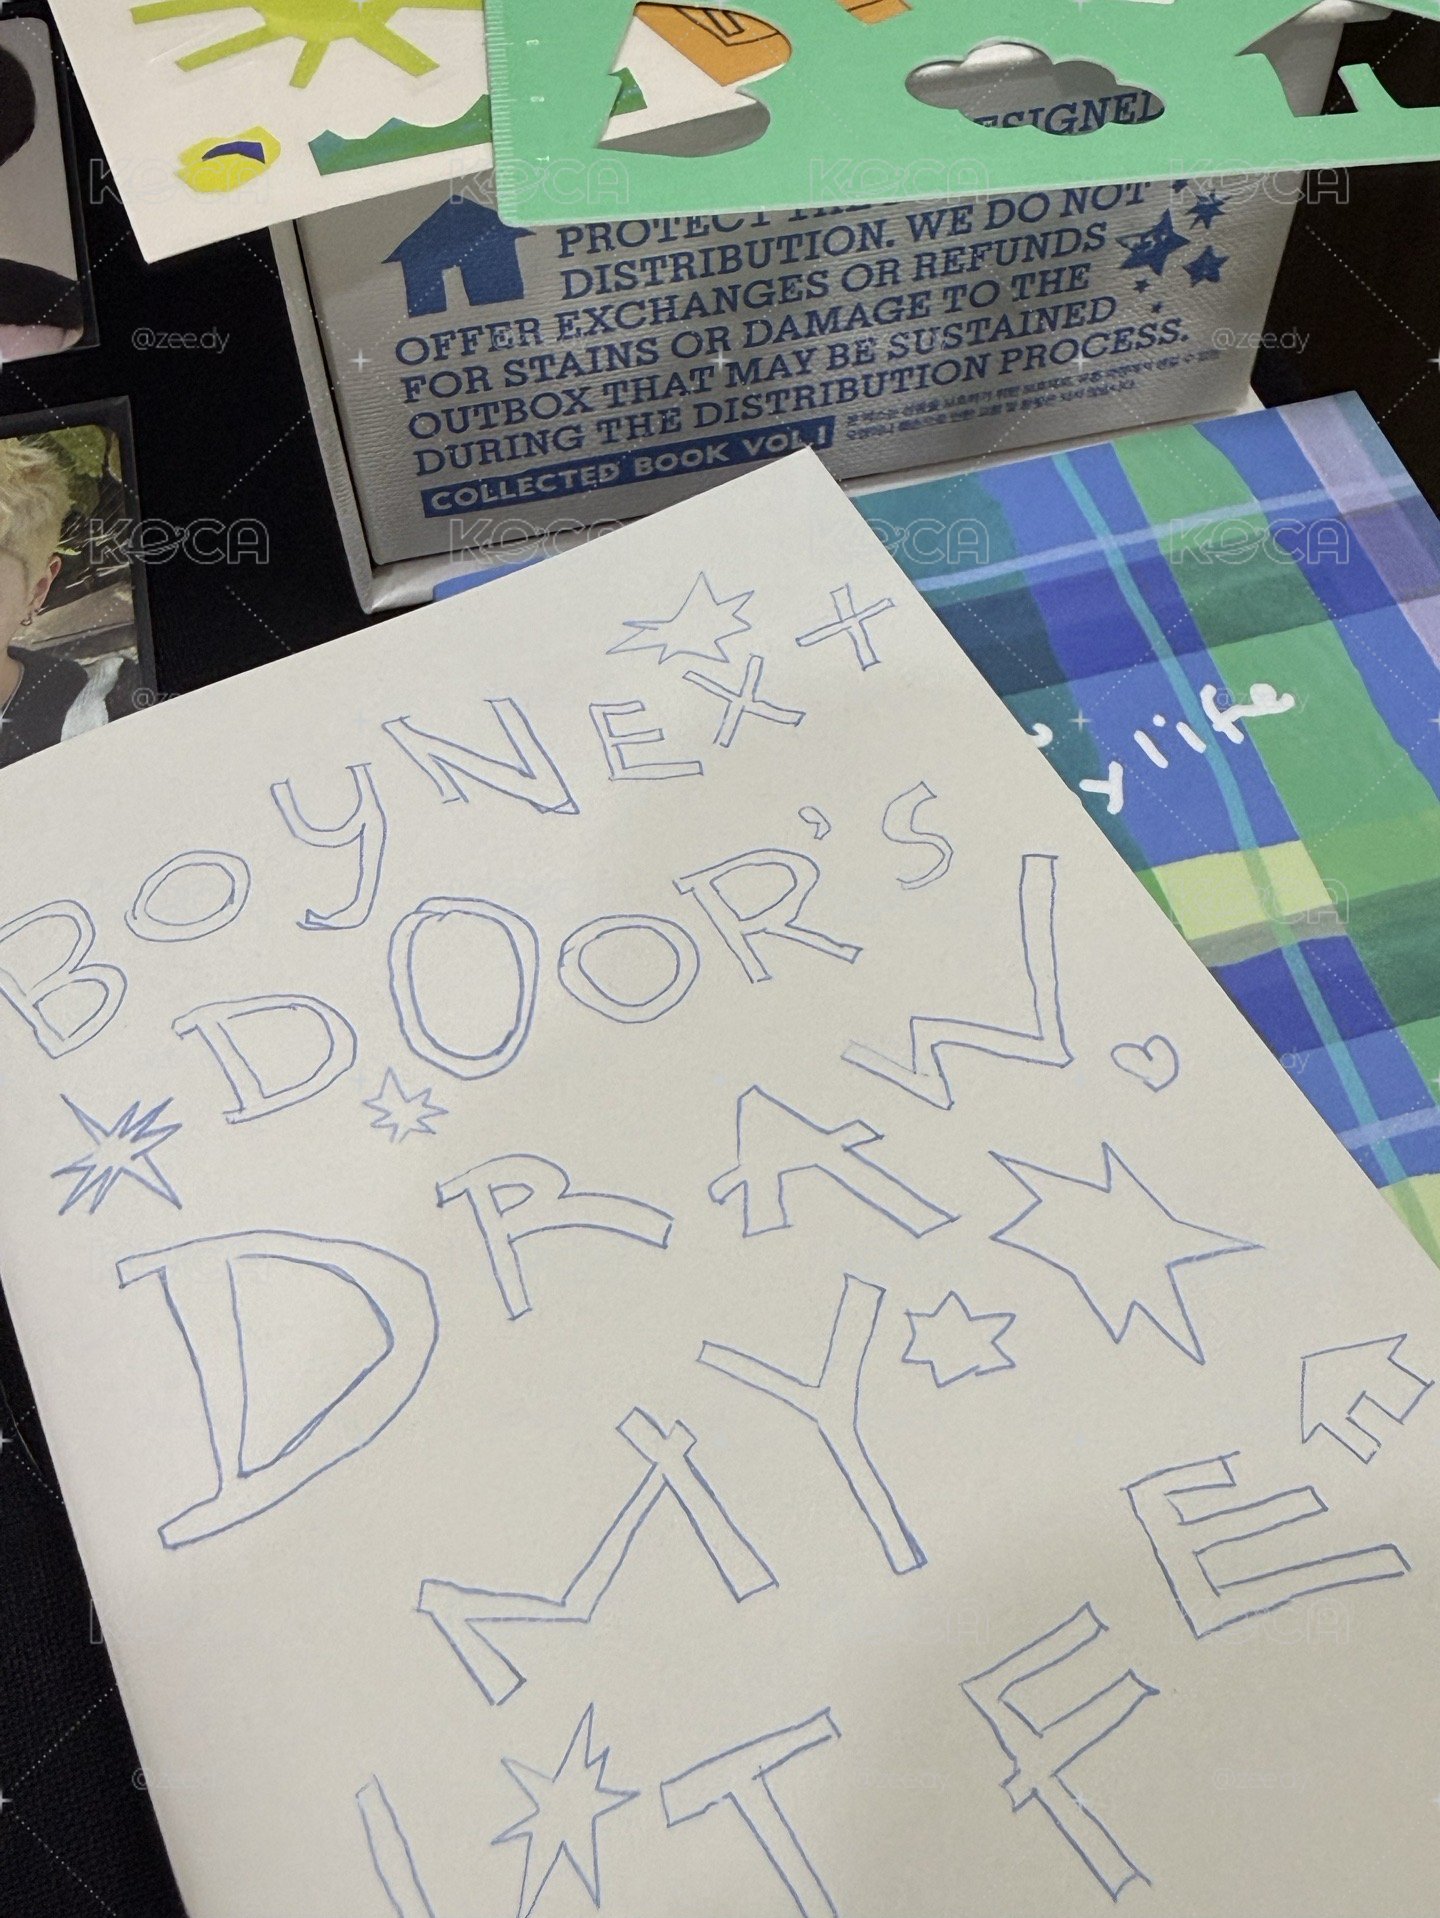 ESIGNED
PROTECT THE
DISTRIBUTION. WE DO NOT
OFFER EXCHANGES OR REFUNDS
FOR STAINS OR DAMAGE TO THE
OUTBOX THAT MAY BE SUSTAINED
DURING THE DISTRIBUTION PROCESS.
COLLECTED BOOK VOL.1
y life
BOYNEXT
DOOR'S
DRAW
MY
LIFE
KOCA
@zee.dy